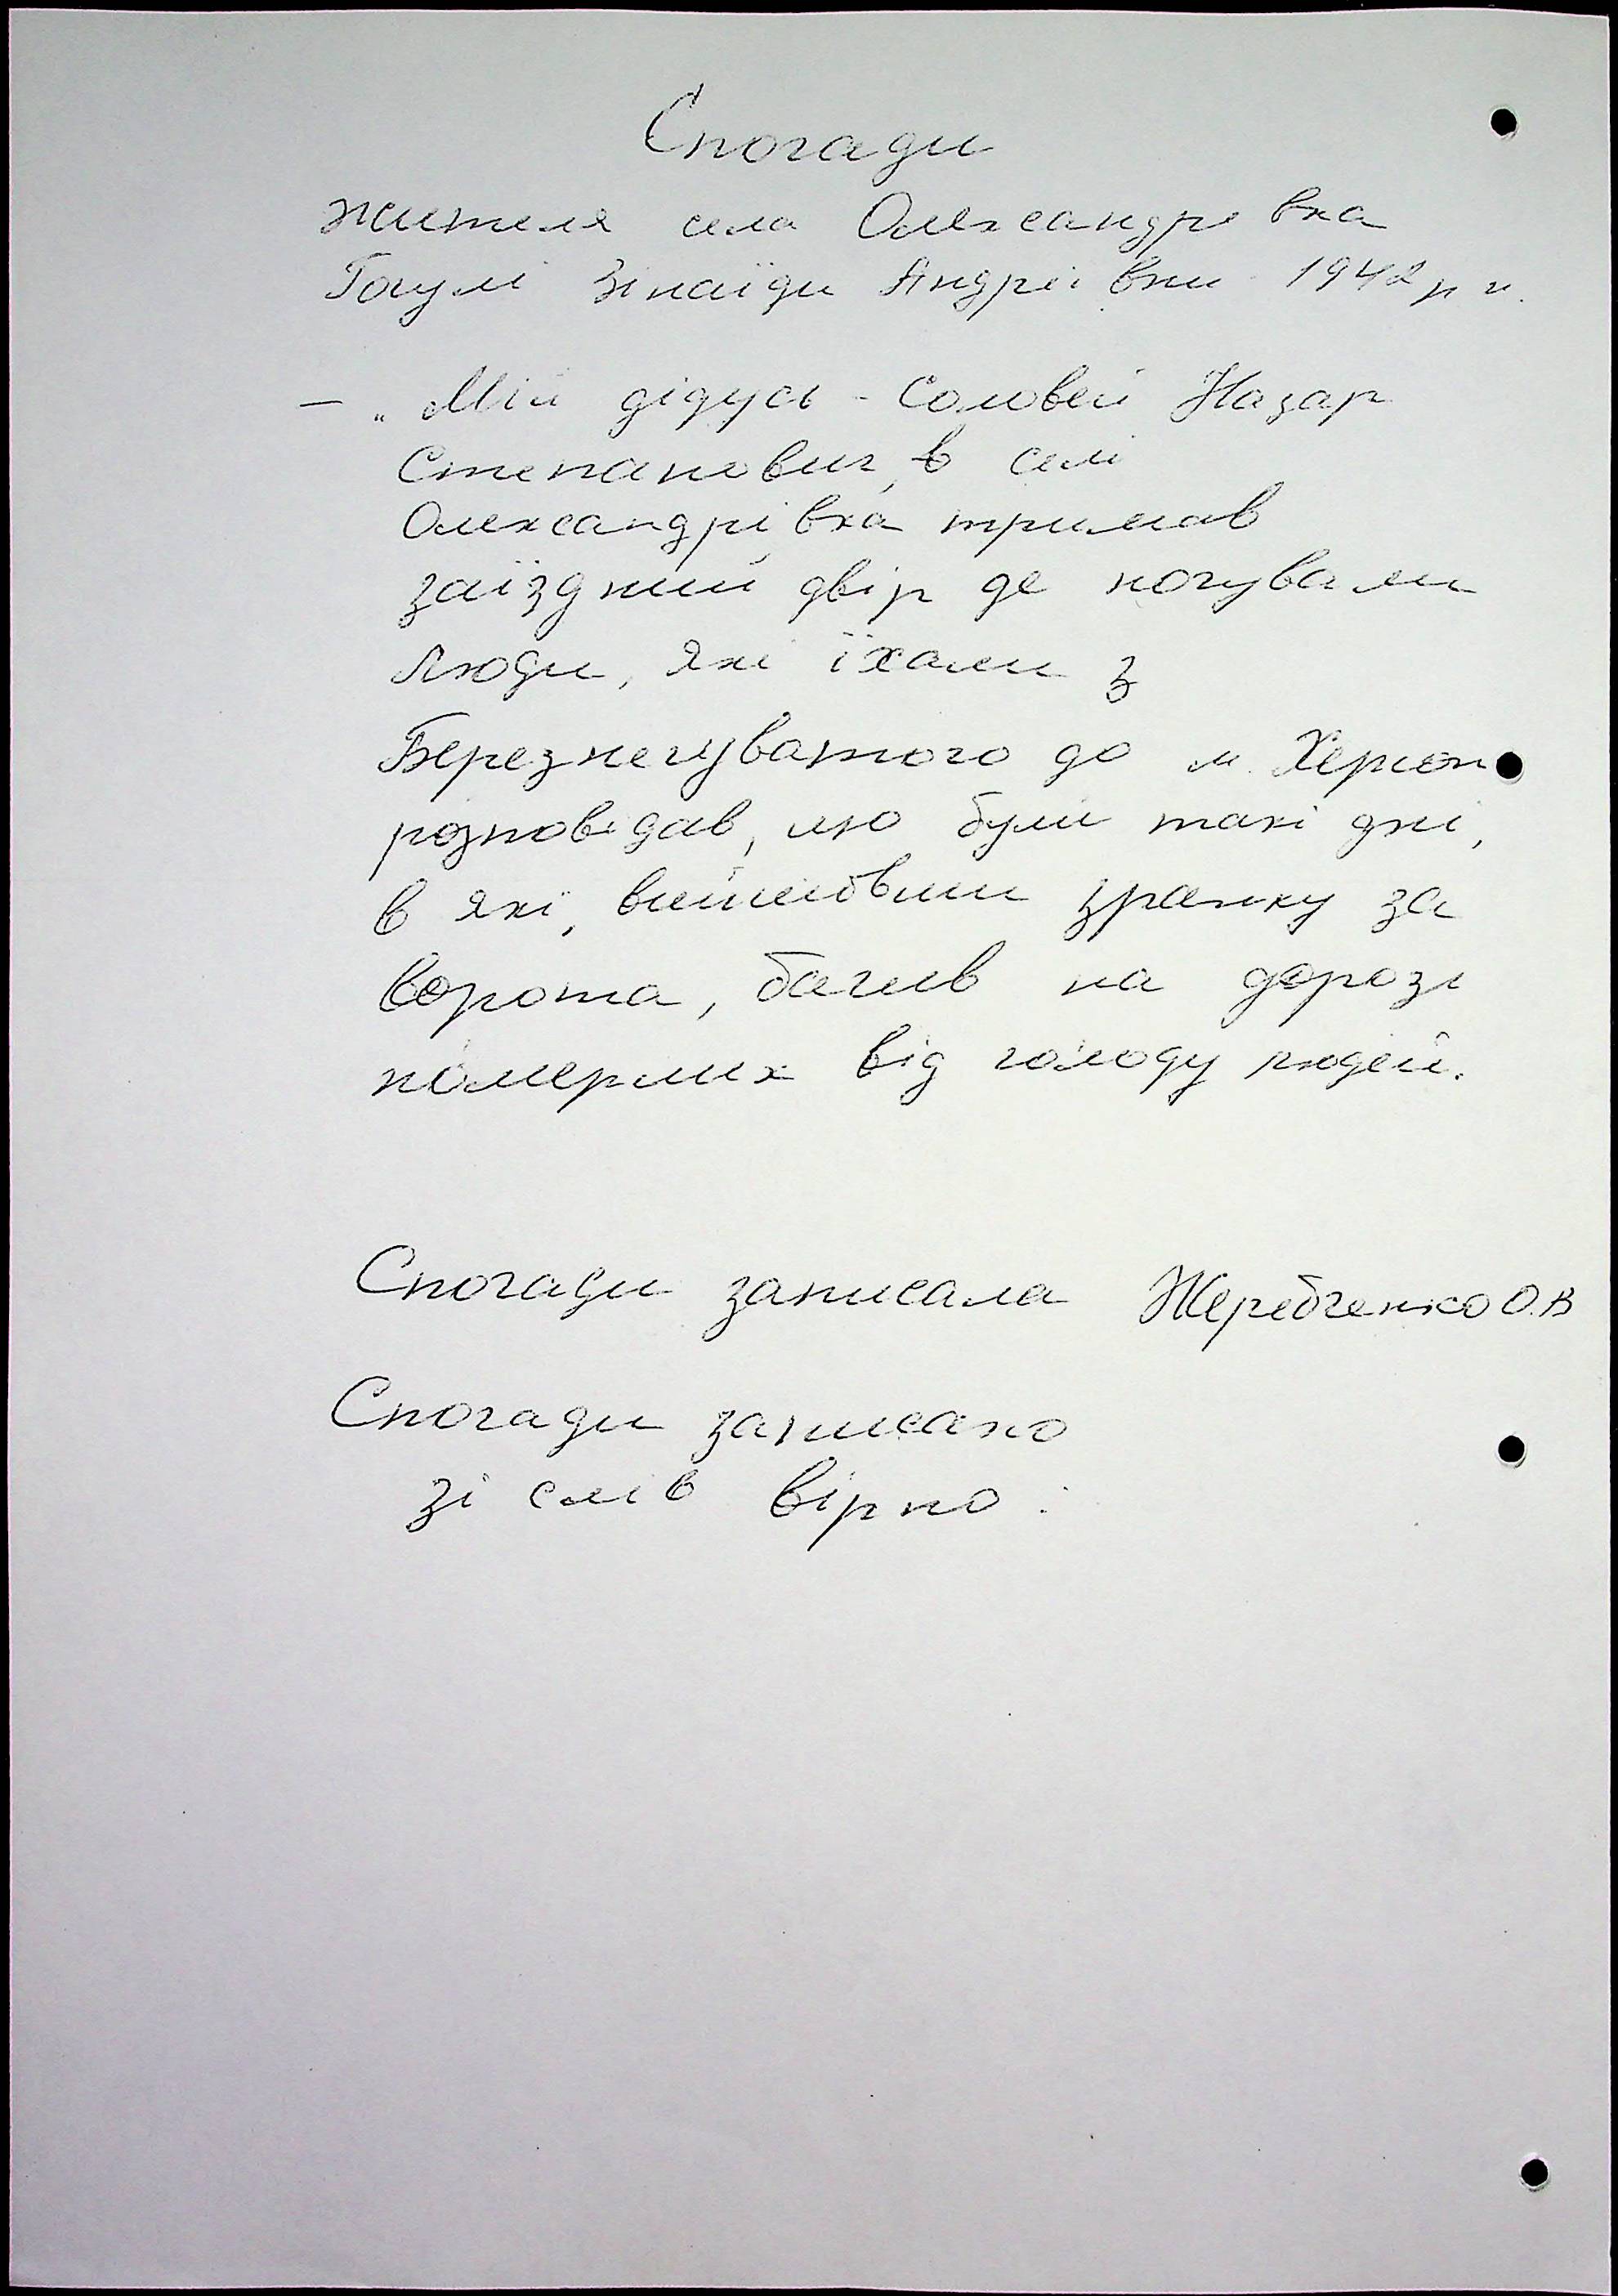 Спогади
жителя села Олександрівка
Зінаїди Андріївни 1942 р н.
– „Мій дідусь - Соловей Назар
Степанович, в селі
Олександрівка тримав
заїздний двір де ночували
люди, які їхали з
Березнегуватого до м. Херсон
розповідав, що були такі дні,
в які, вийшовши зранку за
ворота, бачив на дорозі
померлих від голоду людей.
Спогади записала Жеребченко О.В
Спогади записано
зі слів вірно: